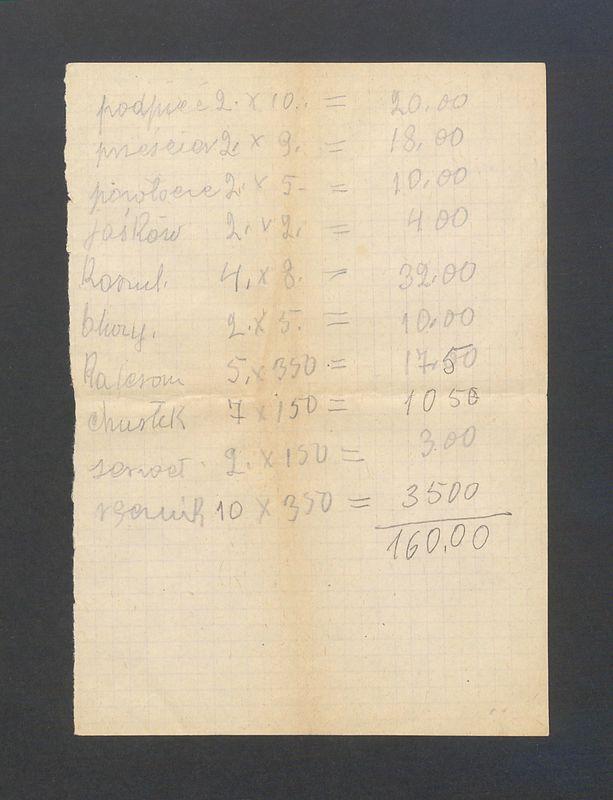 podpięć 2. x 10. = 20.00
2. x 9. = 18.00
2. x 5. = 10.00
jaśków 2. x 2. = 4 00
Koszul. 4. x 8. = 32.00
2. x 5. = 10.00
Kaleson 5. x 350 = 17.50
chustek 7 x 150 = 10 50
serwet 2. x 150 = 3.00
ręcznik 10 x 350 = 3500
160.00